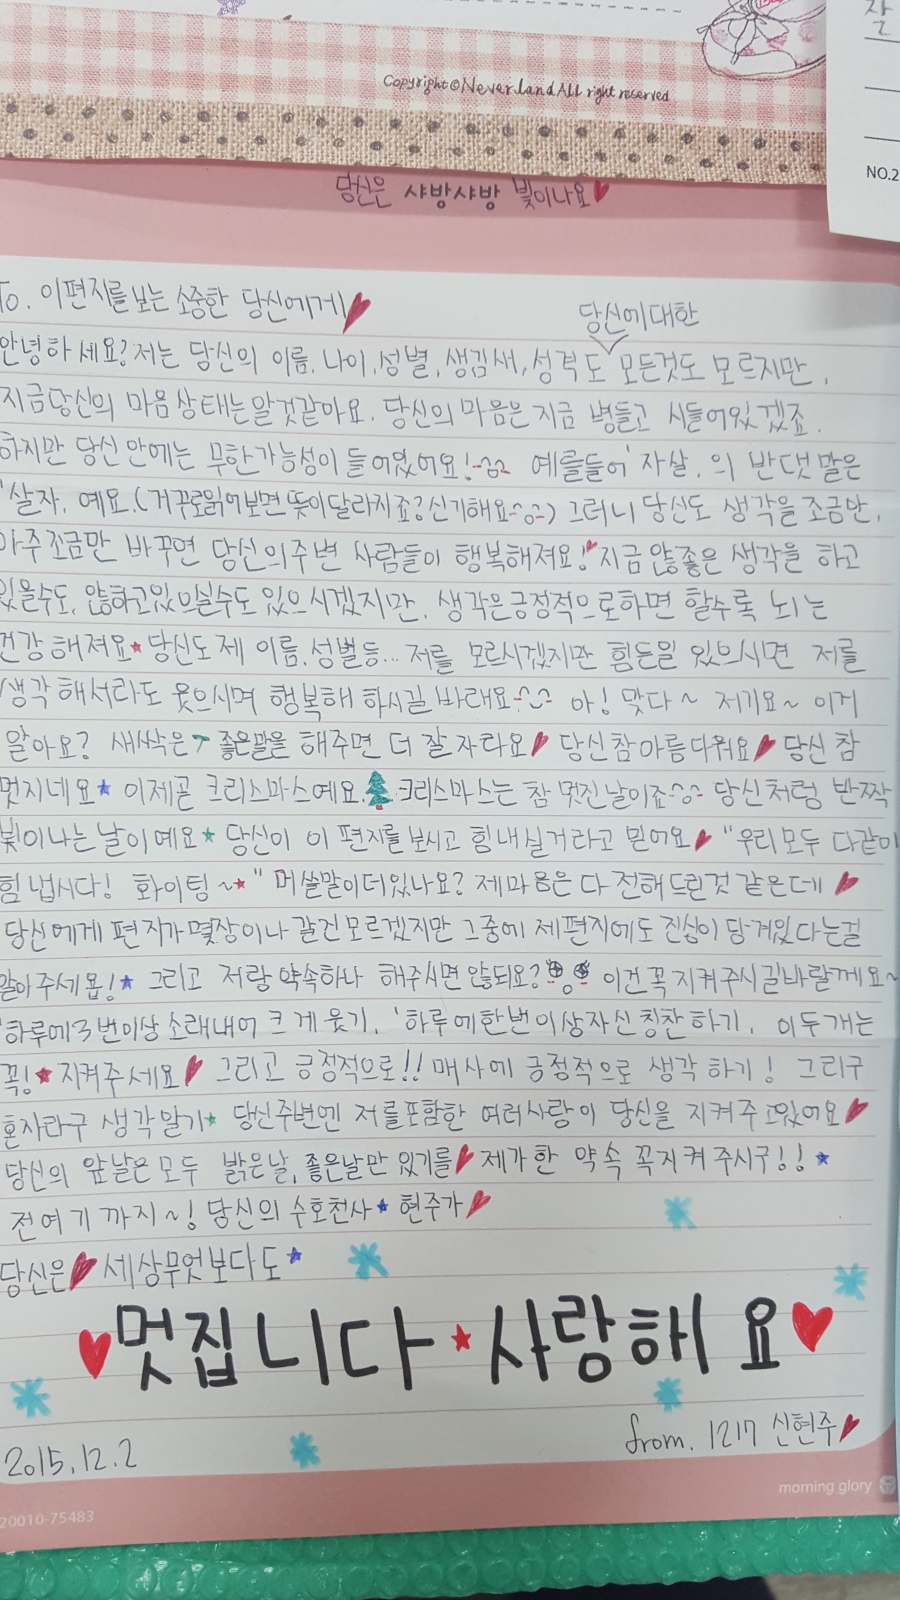 잘
Copyright©Neverland All right reserved
NO.2
당신은 샤방샤방 빛이나요♥
To. 이편지를보는 소중한 당신에게♥
당신에대한
안녕하세요? 저는 당신의 이름, 나이, 성별, 생김새, 성격도 모든것도 모르지만,
지금당신의 마음상태는알것같아요. 당신의마음은지금 병들고 시들어있겠죠.
하지만 당신안에는 무한가능성이 들어있어요! 예를들어 '자살, 의 반댓말은
'살자, 예요.(거꾸로읽어보면뜻이달라지죠?신기해요) 그러니 당신도 생각을조금만,
아주조금만 바꾸면 당신의주변 사람들이 행복해져요!♥지금 않좋은 생각을 하고
있을수도, 않하고있으실수도 있으시겠지만, 생각은긍정적으로하면 할수록 뇌는
건강해져요★당신도 제 이름, 성별등... 저를 모르시겠지만 힘든일 있으시면 저를
생각해서라도 웃으시며 행복해 하시길 바래요 아! 맞다~ 저기요~ 이게
알아요? 새싹은 좋은말을 해주면 더 잘자라요♥ 당신참아름다워요♥ 당신참
멋지네요★ 이제곧 크리스마스예요. 크리스마스는 참 멋진날이죠 당신처럼 반짝
빛이나는날이예요★ 당신이 이 편지를 보시고 힘내실거라고 믿어요♥ "우리모두 다같이
힘냅시다! 화이팅~★" 머쓸말이더있나요? 제마음은다 전해드린것 같은데♥
당신에게 편지가몇장이나 갈건모르겠지만 그중에 제편지에도 진심이 담겨있다는걸
알아주세욥!★ 그리고 저랑약속하나 해주시면 않되요? 이건꼭지켜주시길바랄께요~
'하루에3번이상소래내어 크게웃기, '하루에한번이상자신칭찬하기, 이두개는
꼭!★지켜주세요♥ 그리고 긍정적으로!! 매사에 긍정적으로 생각하기! 그리구
혼자라구 생각말기★ 당신주변엔 저를포함한 여러사람이 당신을 지켜주고있어요♥
당신의 앞날은모두 밝은날, 좋은날만 있기를♥ 제가한 약속 꼭지켜주시구!!★
전여기까지~! 당신의 수호천사★ 현주가♥
당신은♥ 세상무엇보다도★
♥멋집니다★사랑해요♥
2015.12.2
from. 1217 신현주♥
morning glory
20010-75483